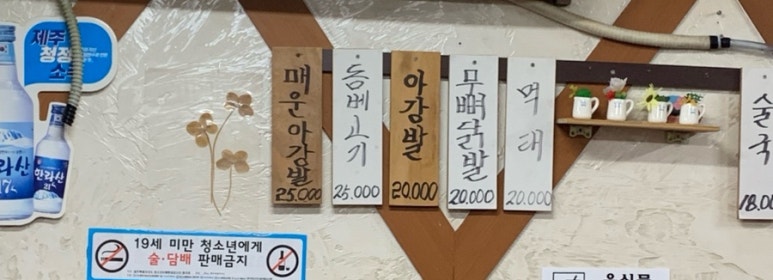 제주
청정
소
한라산
17
한라산
21
매운아강발
25.000
돔베고기
25.000
아강발
20.000
무뼈닭발
20.000
먹태
20.000
술국
18.00
19세 미만 청소년에게
술·담배 판매금지